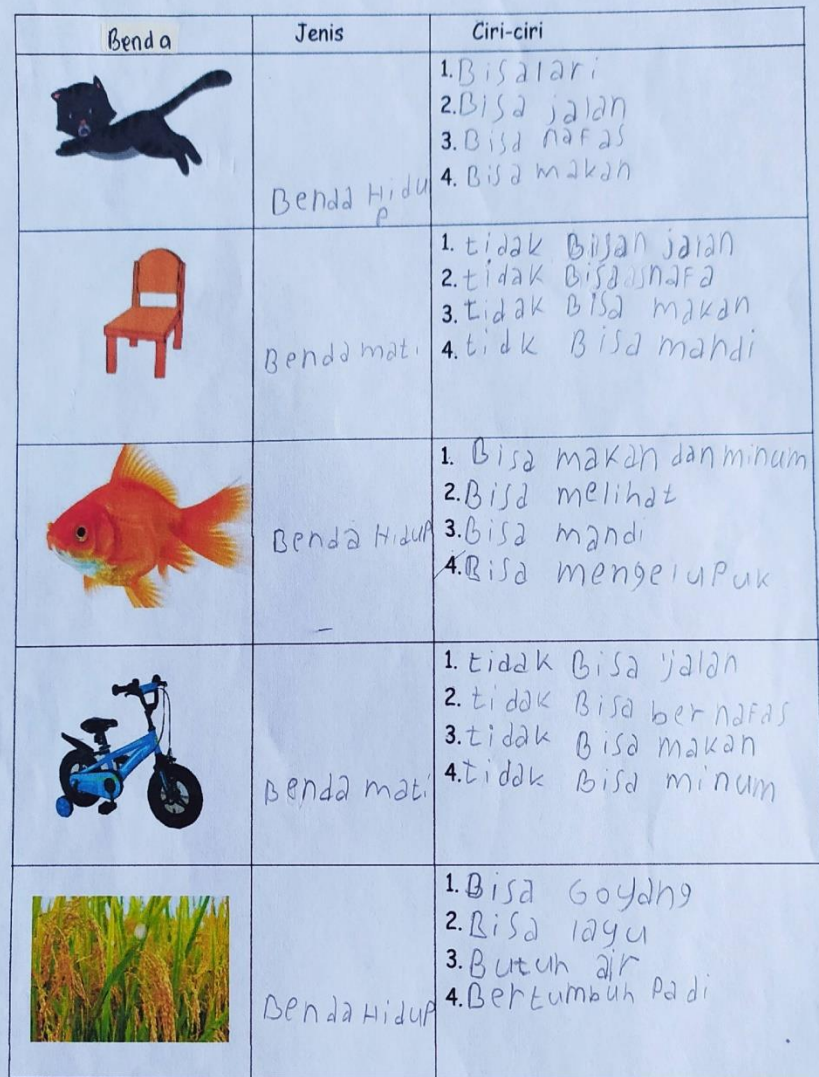 Benda Jenis Ciri-ciri
1. Bisa lari
2. Bisa jalan
3. Bisa nafas
4. Bisa makan
Benda Hidu
p
1. tidak Bisan jalan
2. tidak Bisa nafa
3. tidak Bisa makan
4. tidk Bisa mandi
Benda mati
1. Bisa makan dan minum
2. Bisa melihat
Benda Hidup
3. Bisa mandi
4. Bisa mengelupuk
1. tidak Bisa jalan
2. tidak Bisa bernafas
3. tidak Bisa makan
4. tidak Bisa minum
Benda mati
1. Bisa Goyang
2. Bisa layu
3. Butuh air
4. Bertumbuh Padi
Benda Hidup